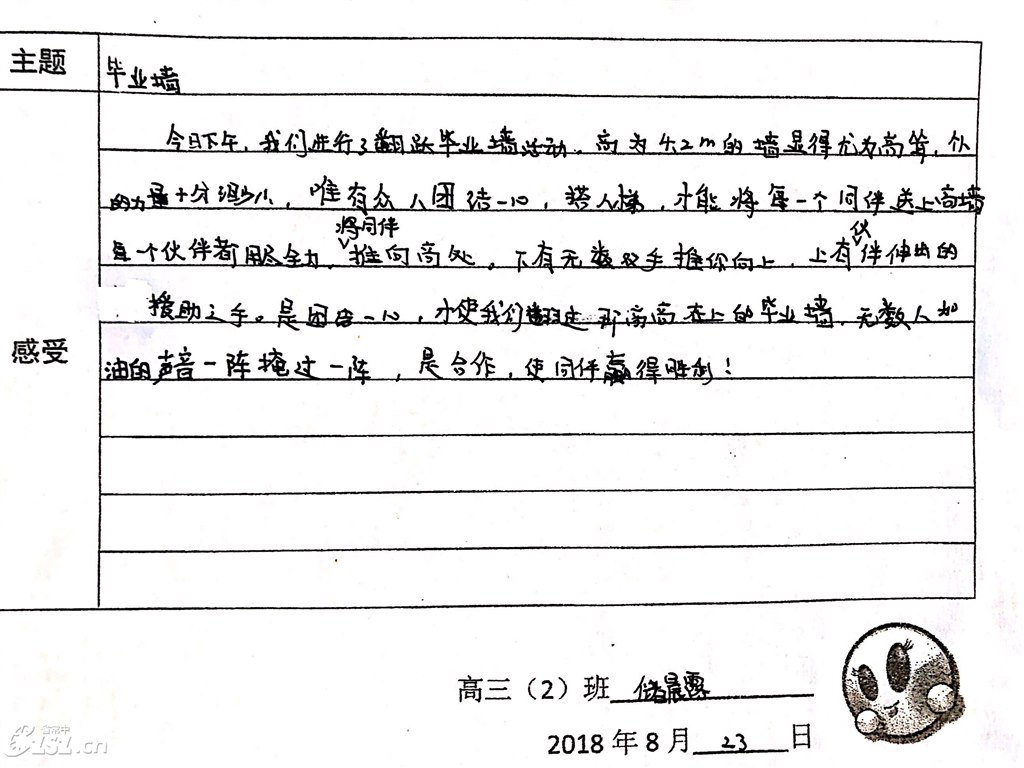 主题
毕业墙
今日下午，我们进行了翻跃毕业墙活动。高为4.2m的墙显得尤为高耸，
的力量十分渺小，唯有众人团结一心，搭人梯，才能将每一个同伴送上高墙
每一个伙伴都用尽全力，将同伴推向高处。下有无数双手推你向上，上有伙伴伸出的
援助之手。是团结一心，才使我们翻过那高高在上的毕业墙，无数人加
感受
油的声音一阵掩过一阵，是合作，使同伴赢得胜利！
高三（2）班 储晨露
2018年8月23日
省常中
c1z1.cn